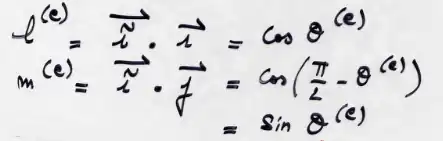 l^(e) = ĩ⃗ . i⃗ = cos θ^(e)
m^(e) = ĩ⃗ . j⃗ = cos(π/2 - θ^(e))
= sin θ^(e)